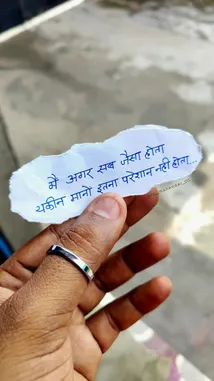 मै अगर सब जैसा होता
यकीन मानो इतना परेशान नही होता...